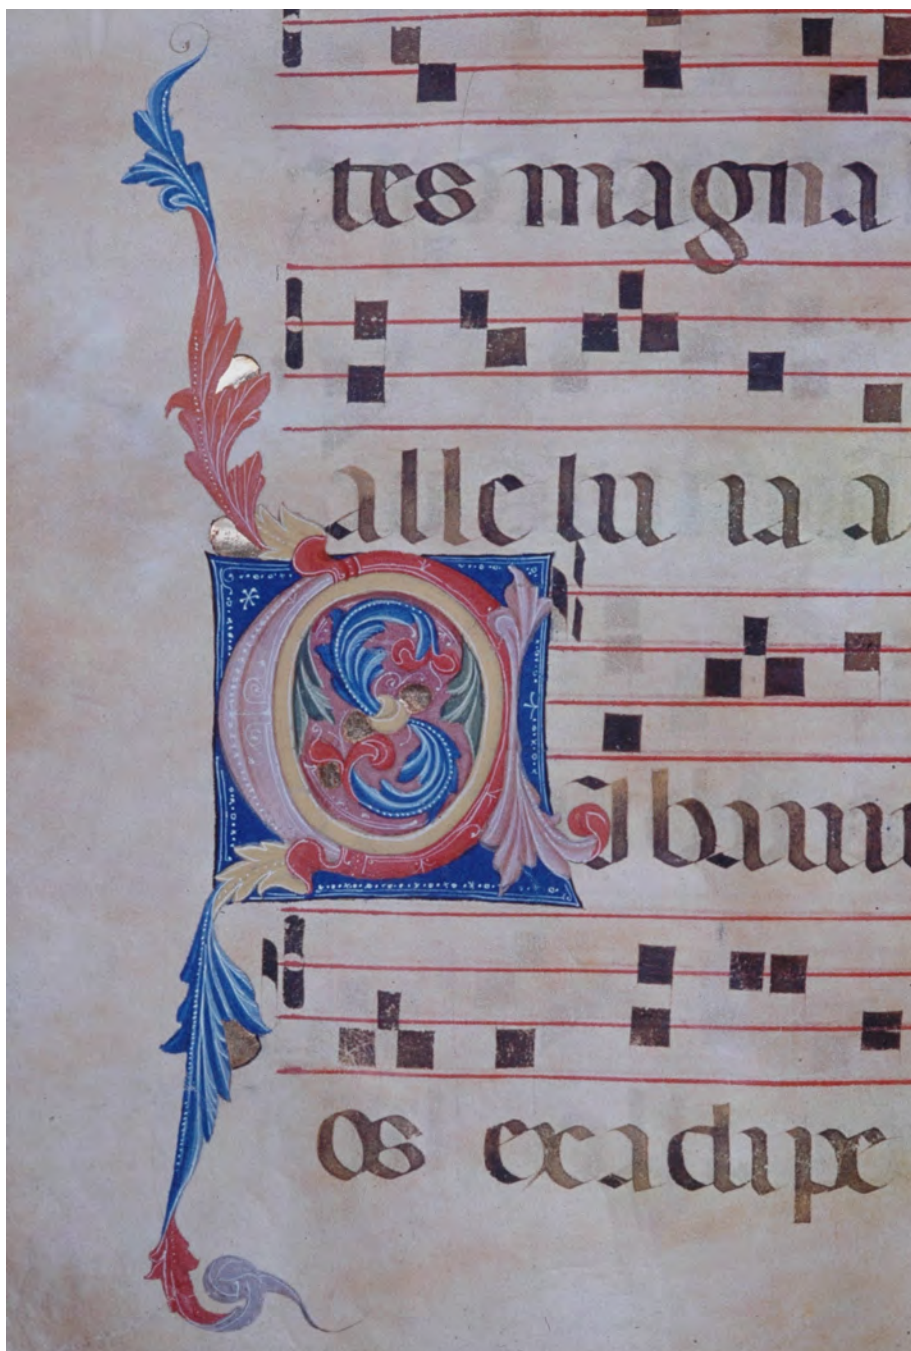 tes magna
alle lu ia a
Cibaui
os ex adipe